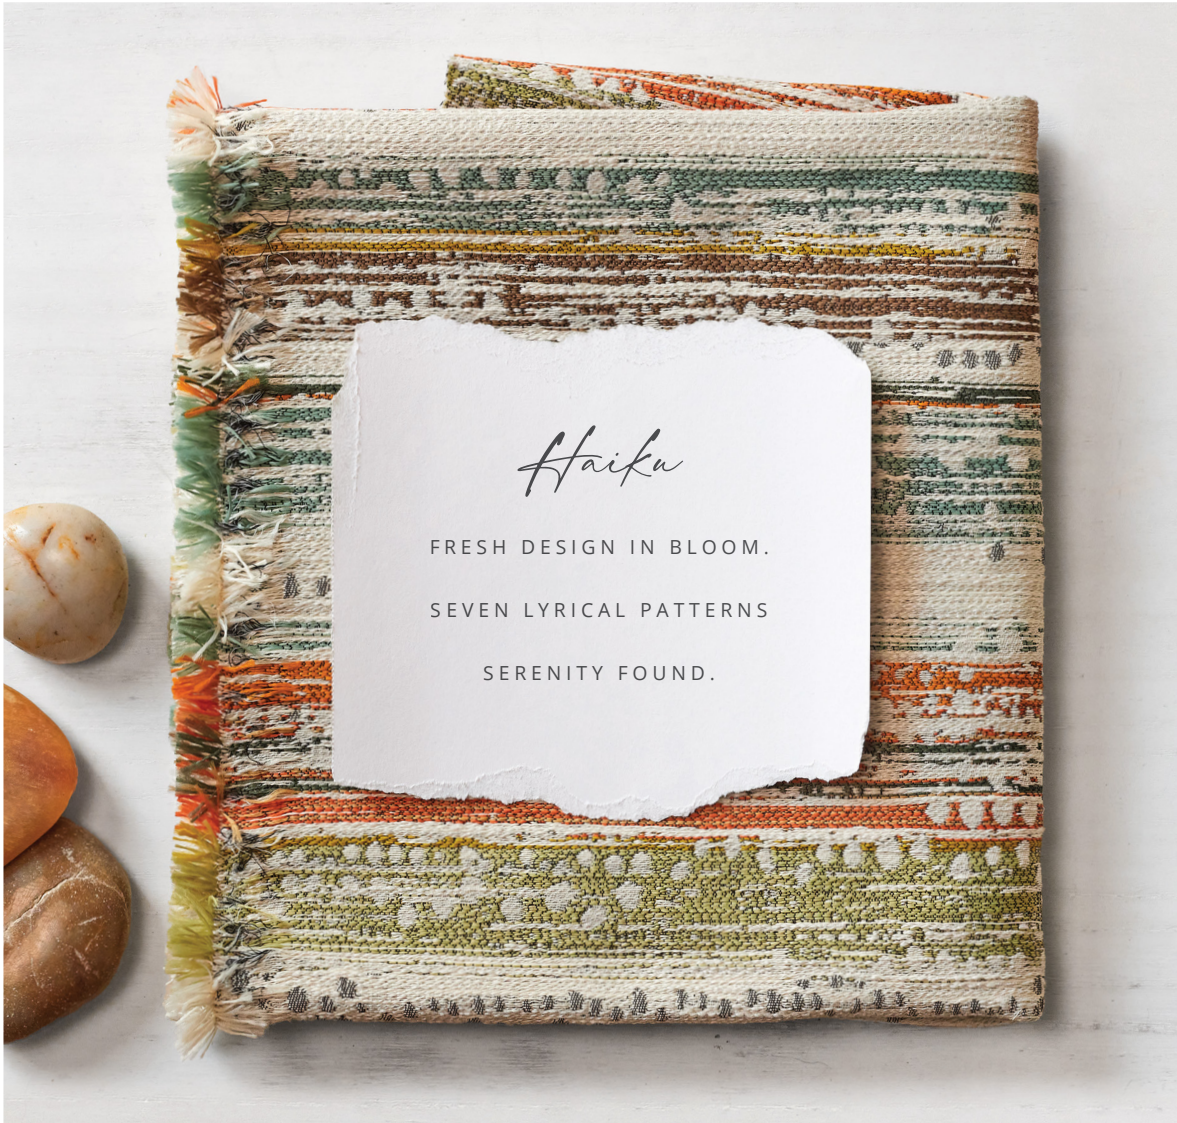 Haiku
FRESH DESIGN IN BLOOM.
SEVEN LYRICAL PATTERNS
SERENITY FOUND.